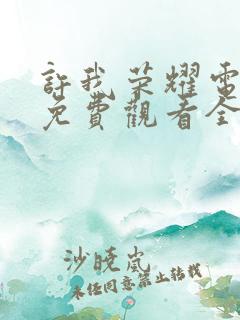 許我荣耀電
免費觀看全
沙曉嵐
未经同意禁止转载